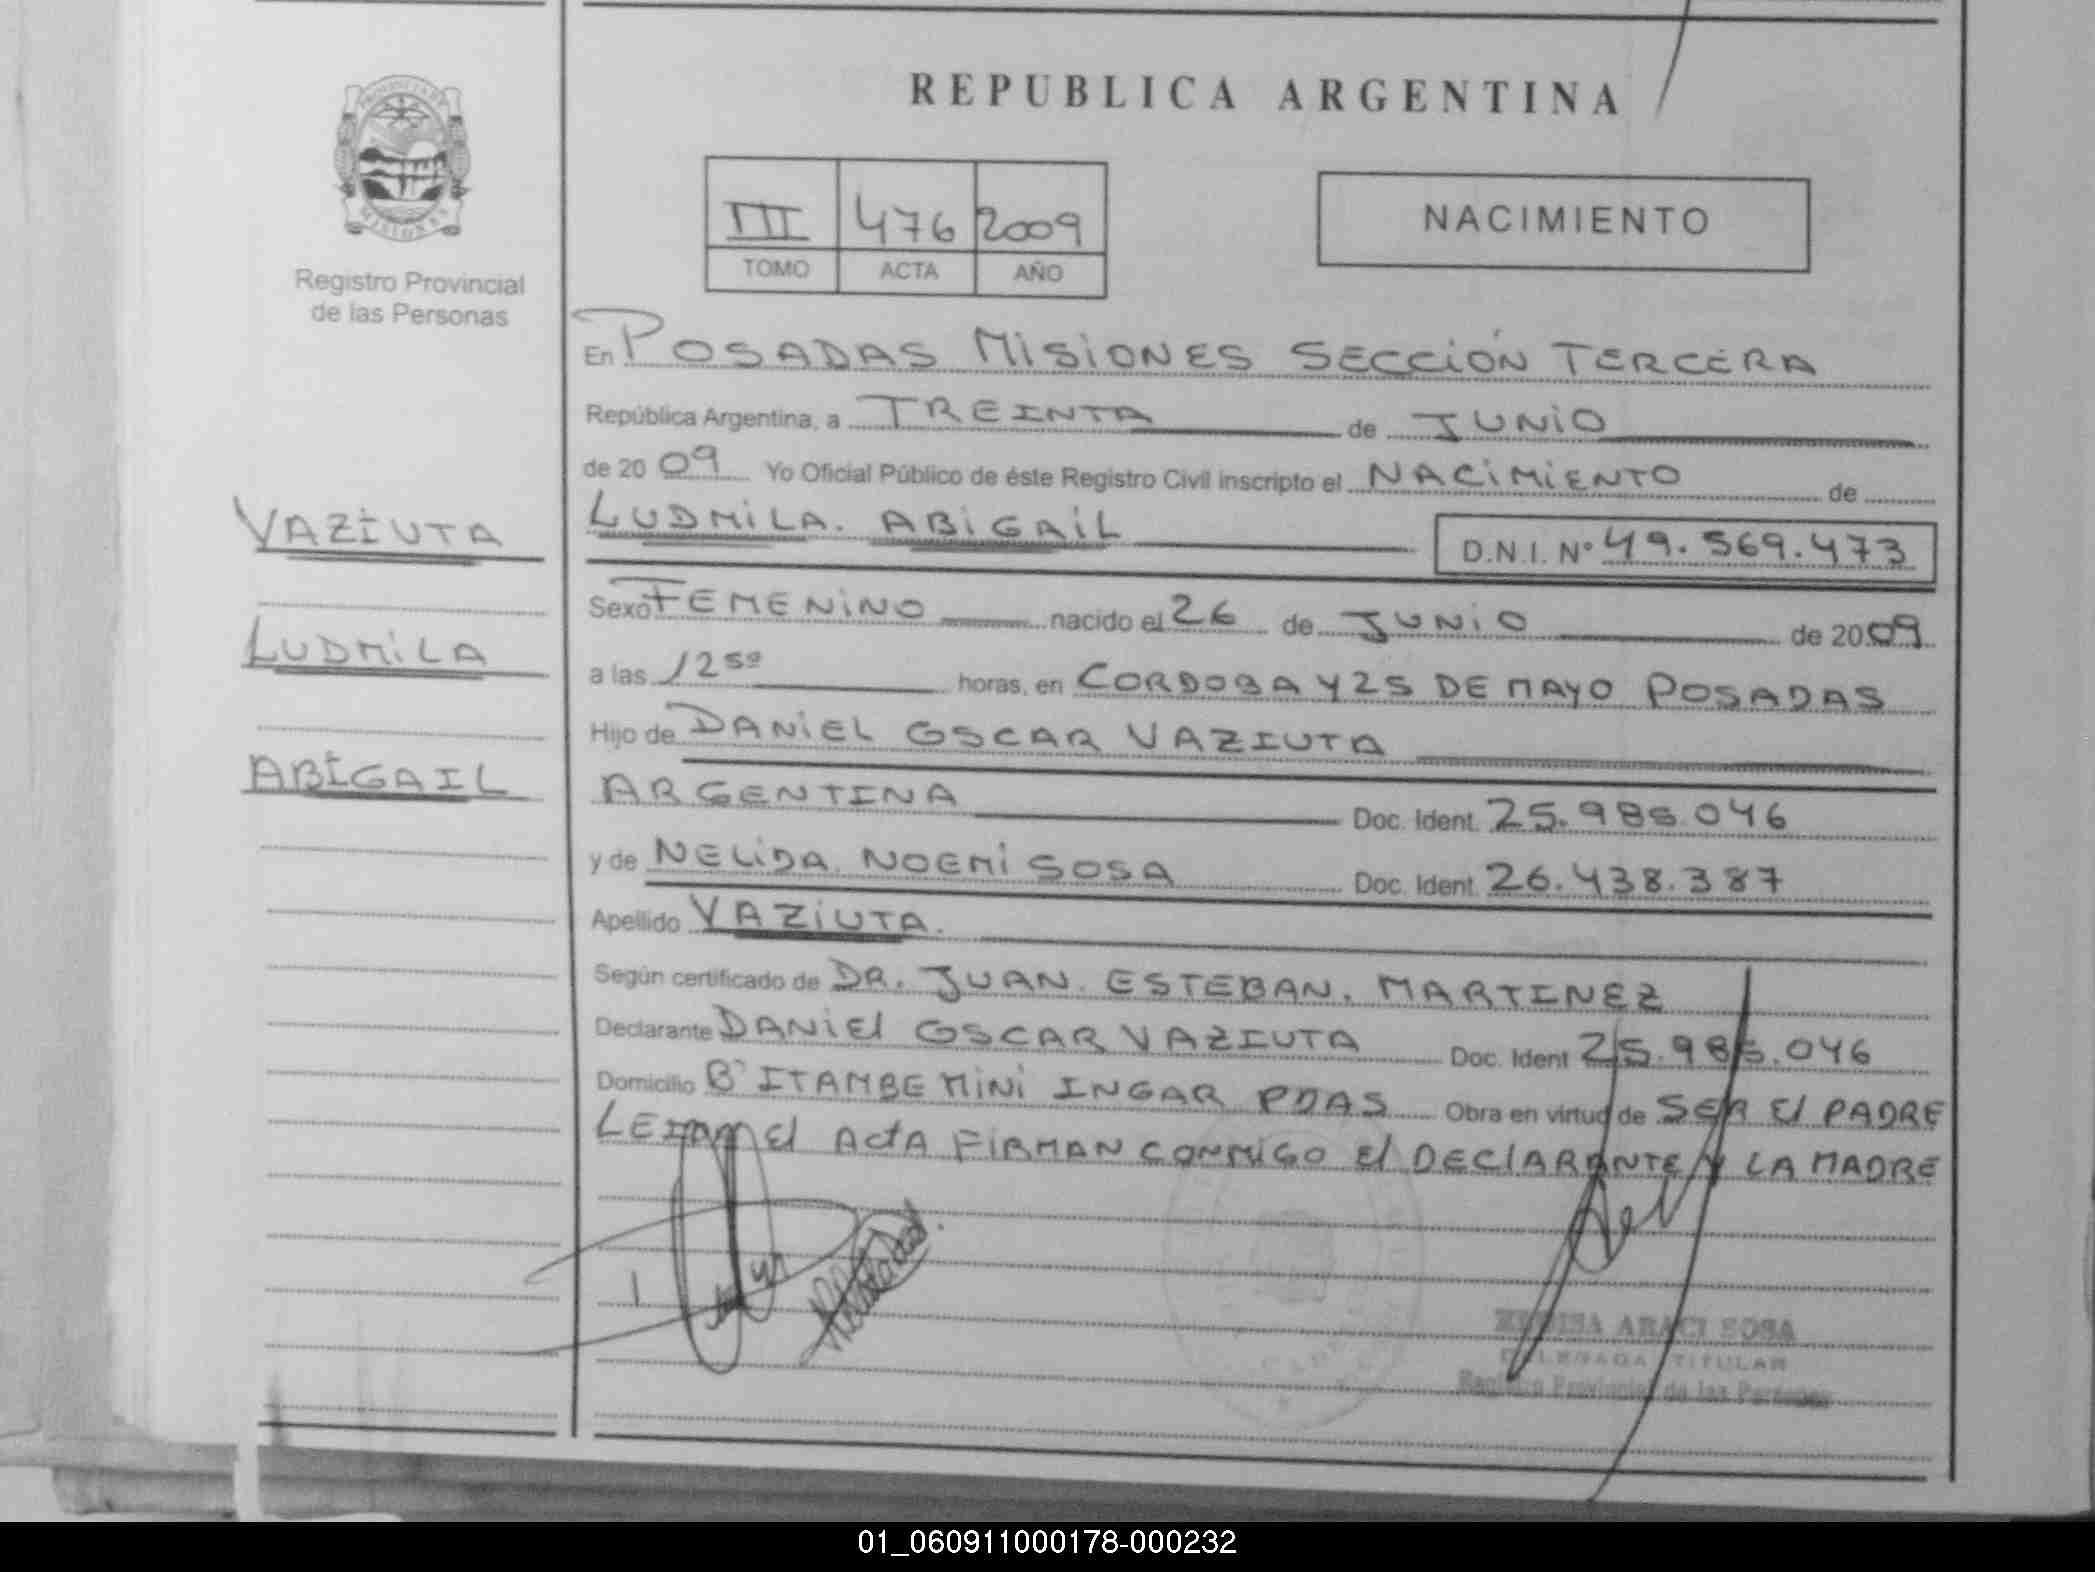 REPUBLICA ARGENTINA
PROVINCIA DE
MISIONES
Registro Provincial
de las Personas
III 476 2009
TOMO ACTA AÑO
NACIMIENTO
En POSADAS MISIONES SECCIÓN TERCERA
República Argentina, a TREINTA de JUNIO
de 2009 Yo Oficial Público de éste Registro Civil inscripto el NACIMIENTO de
LUDMILA. ABIGAIL D.N.I. Nº 49.569.473
VAZIUTA
LUDMILA
ABIGAIL
Sexo FEMENINO nacido el 26 de JUNIO de 2009
a las 12 50 horas, en CORDOBA Y 25 DE MAYO POSADAS
Hijo de DANIEL OSCAR VAZIUTA
ARGENTINA Doc. Ident. 25.985.046
y de NELIDA NOEMI SOSA Doc. Ident. 26.438.387
Apellido VAZIUTA.
Según certificado de DR. JUAN. ESTEBAN. MARTINEZ
Declarante DANIEl OSCAR VAZIUTA Doc. Ident 25.985.046
Domicilio Bº ITAMBE MINI INGAR PDAS Obra en virtud de SER El PADRE
El ACTA FIRMAN CONMIGO El DEClARANTE Y LA MADRE
ARACI SOSA
DELEGADA TITULAR
Registro Provincial de las Personas
01_060911000178-000232